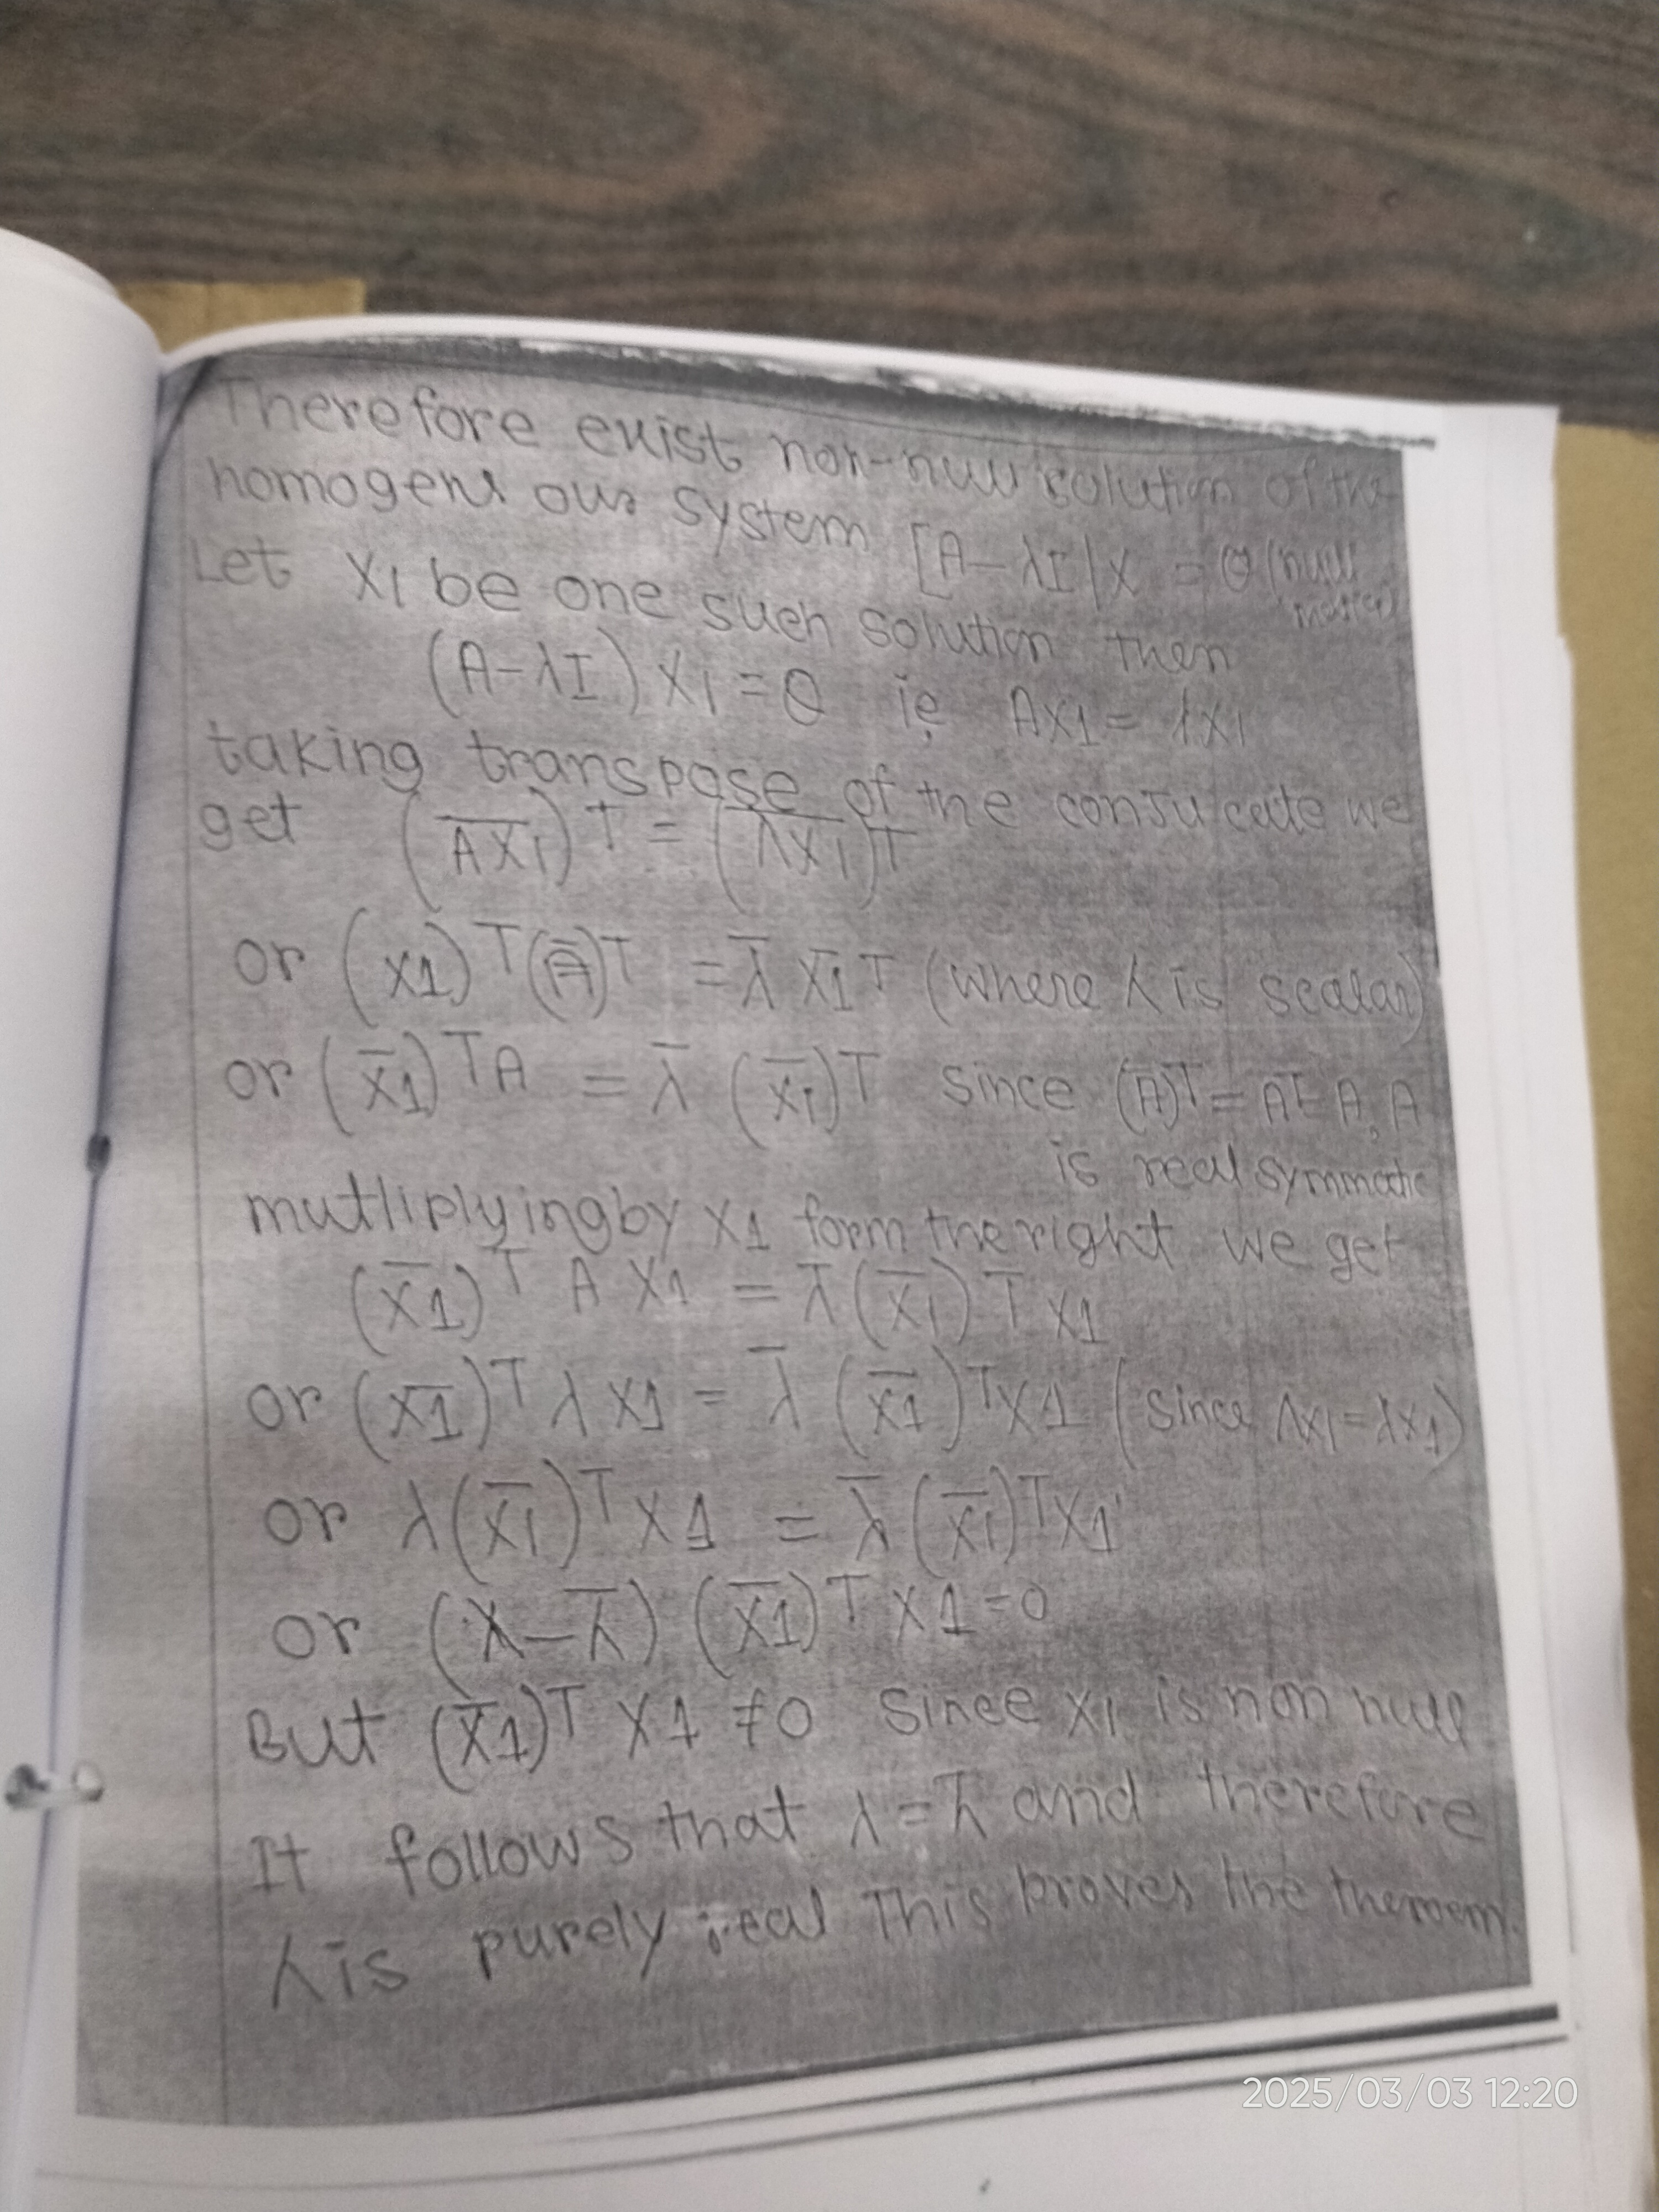 Therefore exist non-null solution of the
homogens ous system [A-λI|X = θ (null
matrix)
Let X1 be one such solution then
(A-λI) X1 = θ ie AX1 = λX1
taking transpose of the conjucate we
get (A̅X̅1̅)T = (λ̅X̅1̅)T
or (X1)T(A̅)T = λ̅ X̅1T (where λ is scalar)
or (X̅1)TA = λ̅ (X̅1)T since (A̅)T = AT A, A
is real symmatic
mutliplyingby X1 form the right we get
(X̅1)T A X1 = λ̅(X̅1)T X1
or (X̅1)T λ X1 = λ̅ (X̅1)T X1 (since ΛX1 = λX1)
or λ(X̅1)T X1 = λ̅ (X̅1)T X1
or (λ-λ̅) (X̅1)T X1=0
But (X̅1)T X1 ≠0 since X1 is non null
It follows that λ=λ̅ and therefore
λ is purely real This proves the theroem.
2025/03/03 12:20